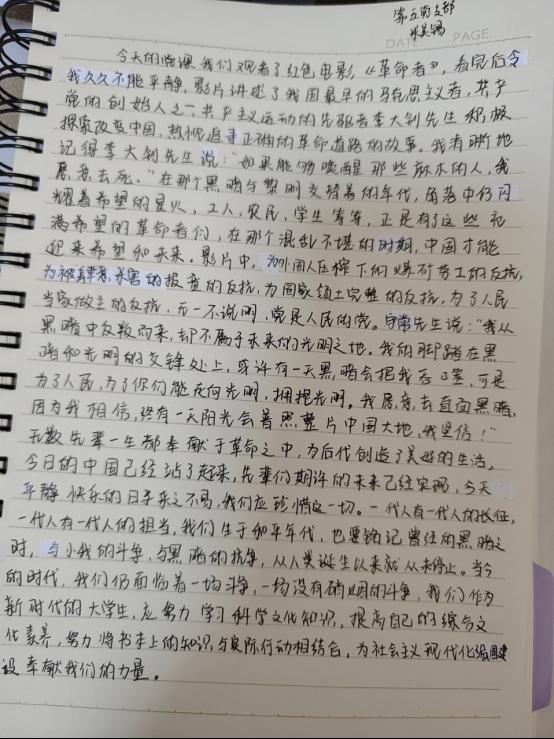 第五党支部
DATE. PAGE.
今天的党课,我们观看了红色电影《革命者》,看完后令
我久久不能平静,影片讲述了我国最早的马克思主义者,共产
党的创始人之一,共产主义运动的先驱者李大钊先生积极
探索改变中国,热忱追寻正确的革命道路的故事。我清晰地
记得李大钊先生说:“如果能够唤醒那些麻木的人,我
愿意去死。”在那个黑暗与黎明交替着的年代,角落中仍闪
耀着希望的星火,工人,农民,学生等等,正是有了这些充
满希望的革命者们,在那个混乱不堪的时期,中国才能
迎来希望和未来。影片中,为外国人压榨下的煤矿劳工的反抗,
为被肆意杀害的报童的反抗,为国家领土完整的反抗,为了人民
当家做主的反抗,无一不说明,党是人民的党。守常先生说:“我从
黑暗中反叛而来,却不属于未来的光明之地。我的脚踏在黑
暗和光明的交锋处上,或许有一天黑暗会把我吞噬,可是
为了人民,为了你们能走向光明,拥抱光明。我愿意去直面黑暗,
因为我相信,终有一天阳光会普照整片中国大地,我坚信!”
无数先辈一生都奉献于革命之中,为后代创造了美好的生活。
今日的中国已经站了起来,先辈们期许的未来已经实现,今天
平静快乐的日子来之不易,我们应珍惜这一切。一代人有一代人的长征,
一代人有一代人的担当,我们生于和平年代,也要铭记曾经的黑暗之
时,与小我的斗争,与黑暗的抗争,从人类诞生以来就从未停止。当今
的时代,我们仍面临着一场斗争,一场没有硝烟的斗争,我们作为
新时代的大学生,应努力学习科学文化知识,提高自己的综合文
化素养,努力将书本上的知识与实际行动相结合,为社会主义现代化强国建
设奉献我们的力量。